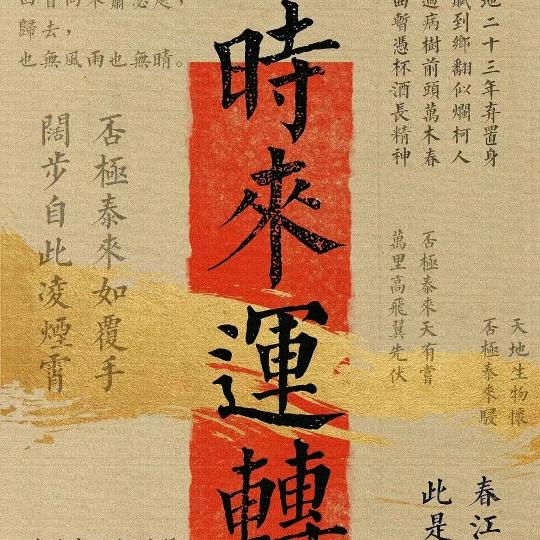 時來運轉
地二十三年弃置身
賦到鄉翻似爛柯人
過病樹前頭萬木春
曲暫憑杯酒長精神
回首向來蕭瑟處，
歸去，
也無風雨也無晴。
否極泰來如覆手
闊步自此凌煙霄
否極泰來天有嘗
萬里高飛翼先伏
天地生物懷
否極泰來
春江
此是